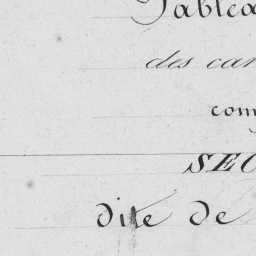 Tablea
des car
com
SEC
dite de